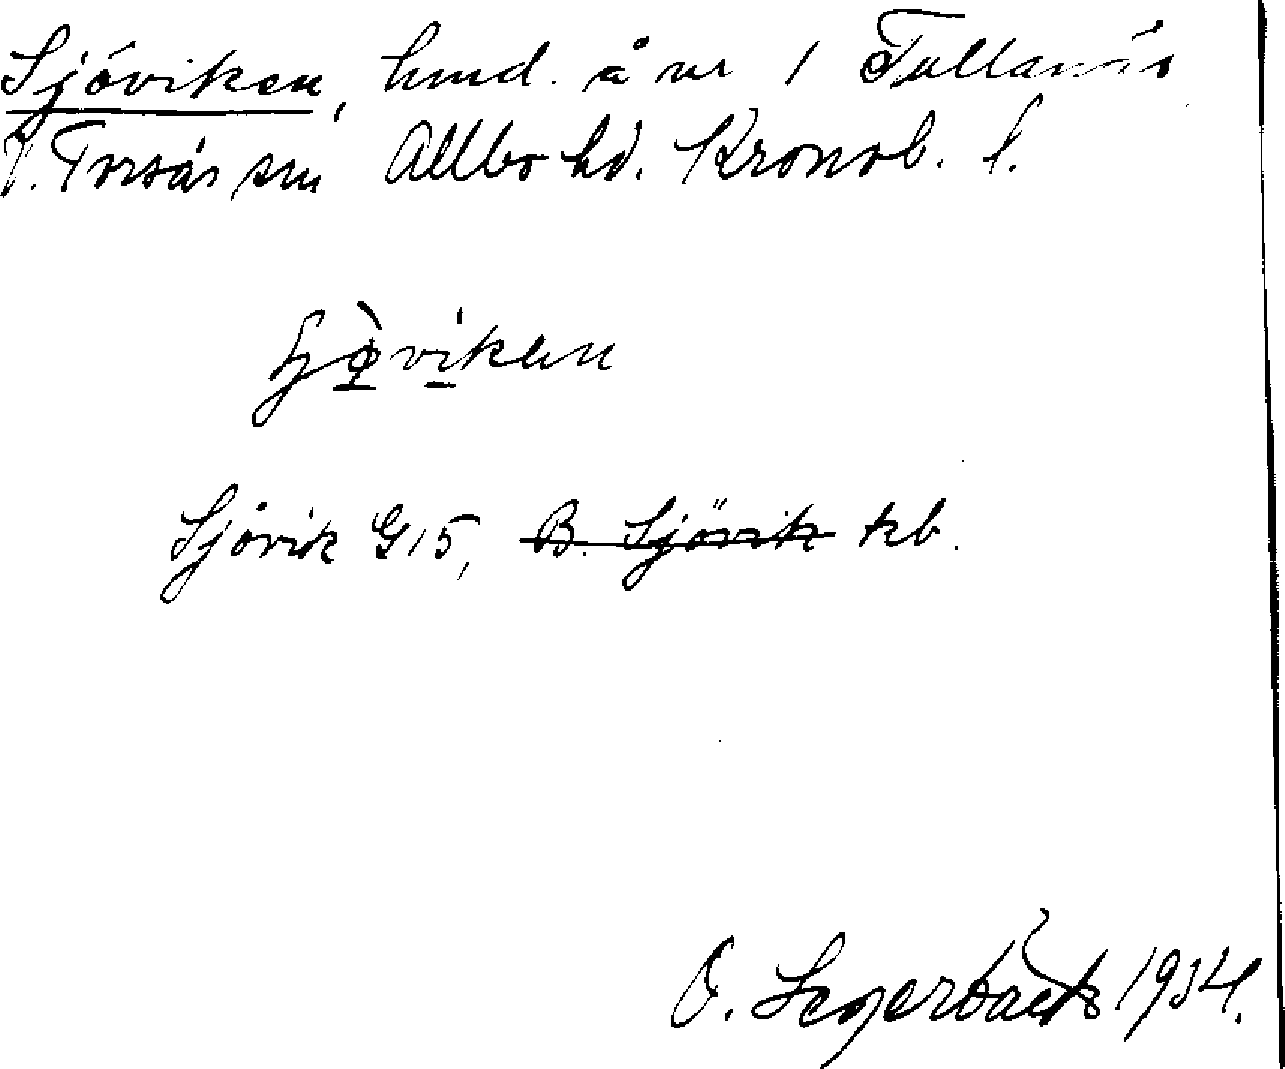 Sjöviken, hmd. å nr 1 Tallanäs
V. Torsås sn Allbo hd. Kronob. l.
Sjövik G15, B. Sjövik kb.
O. Segerbäck 1934.